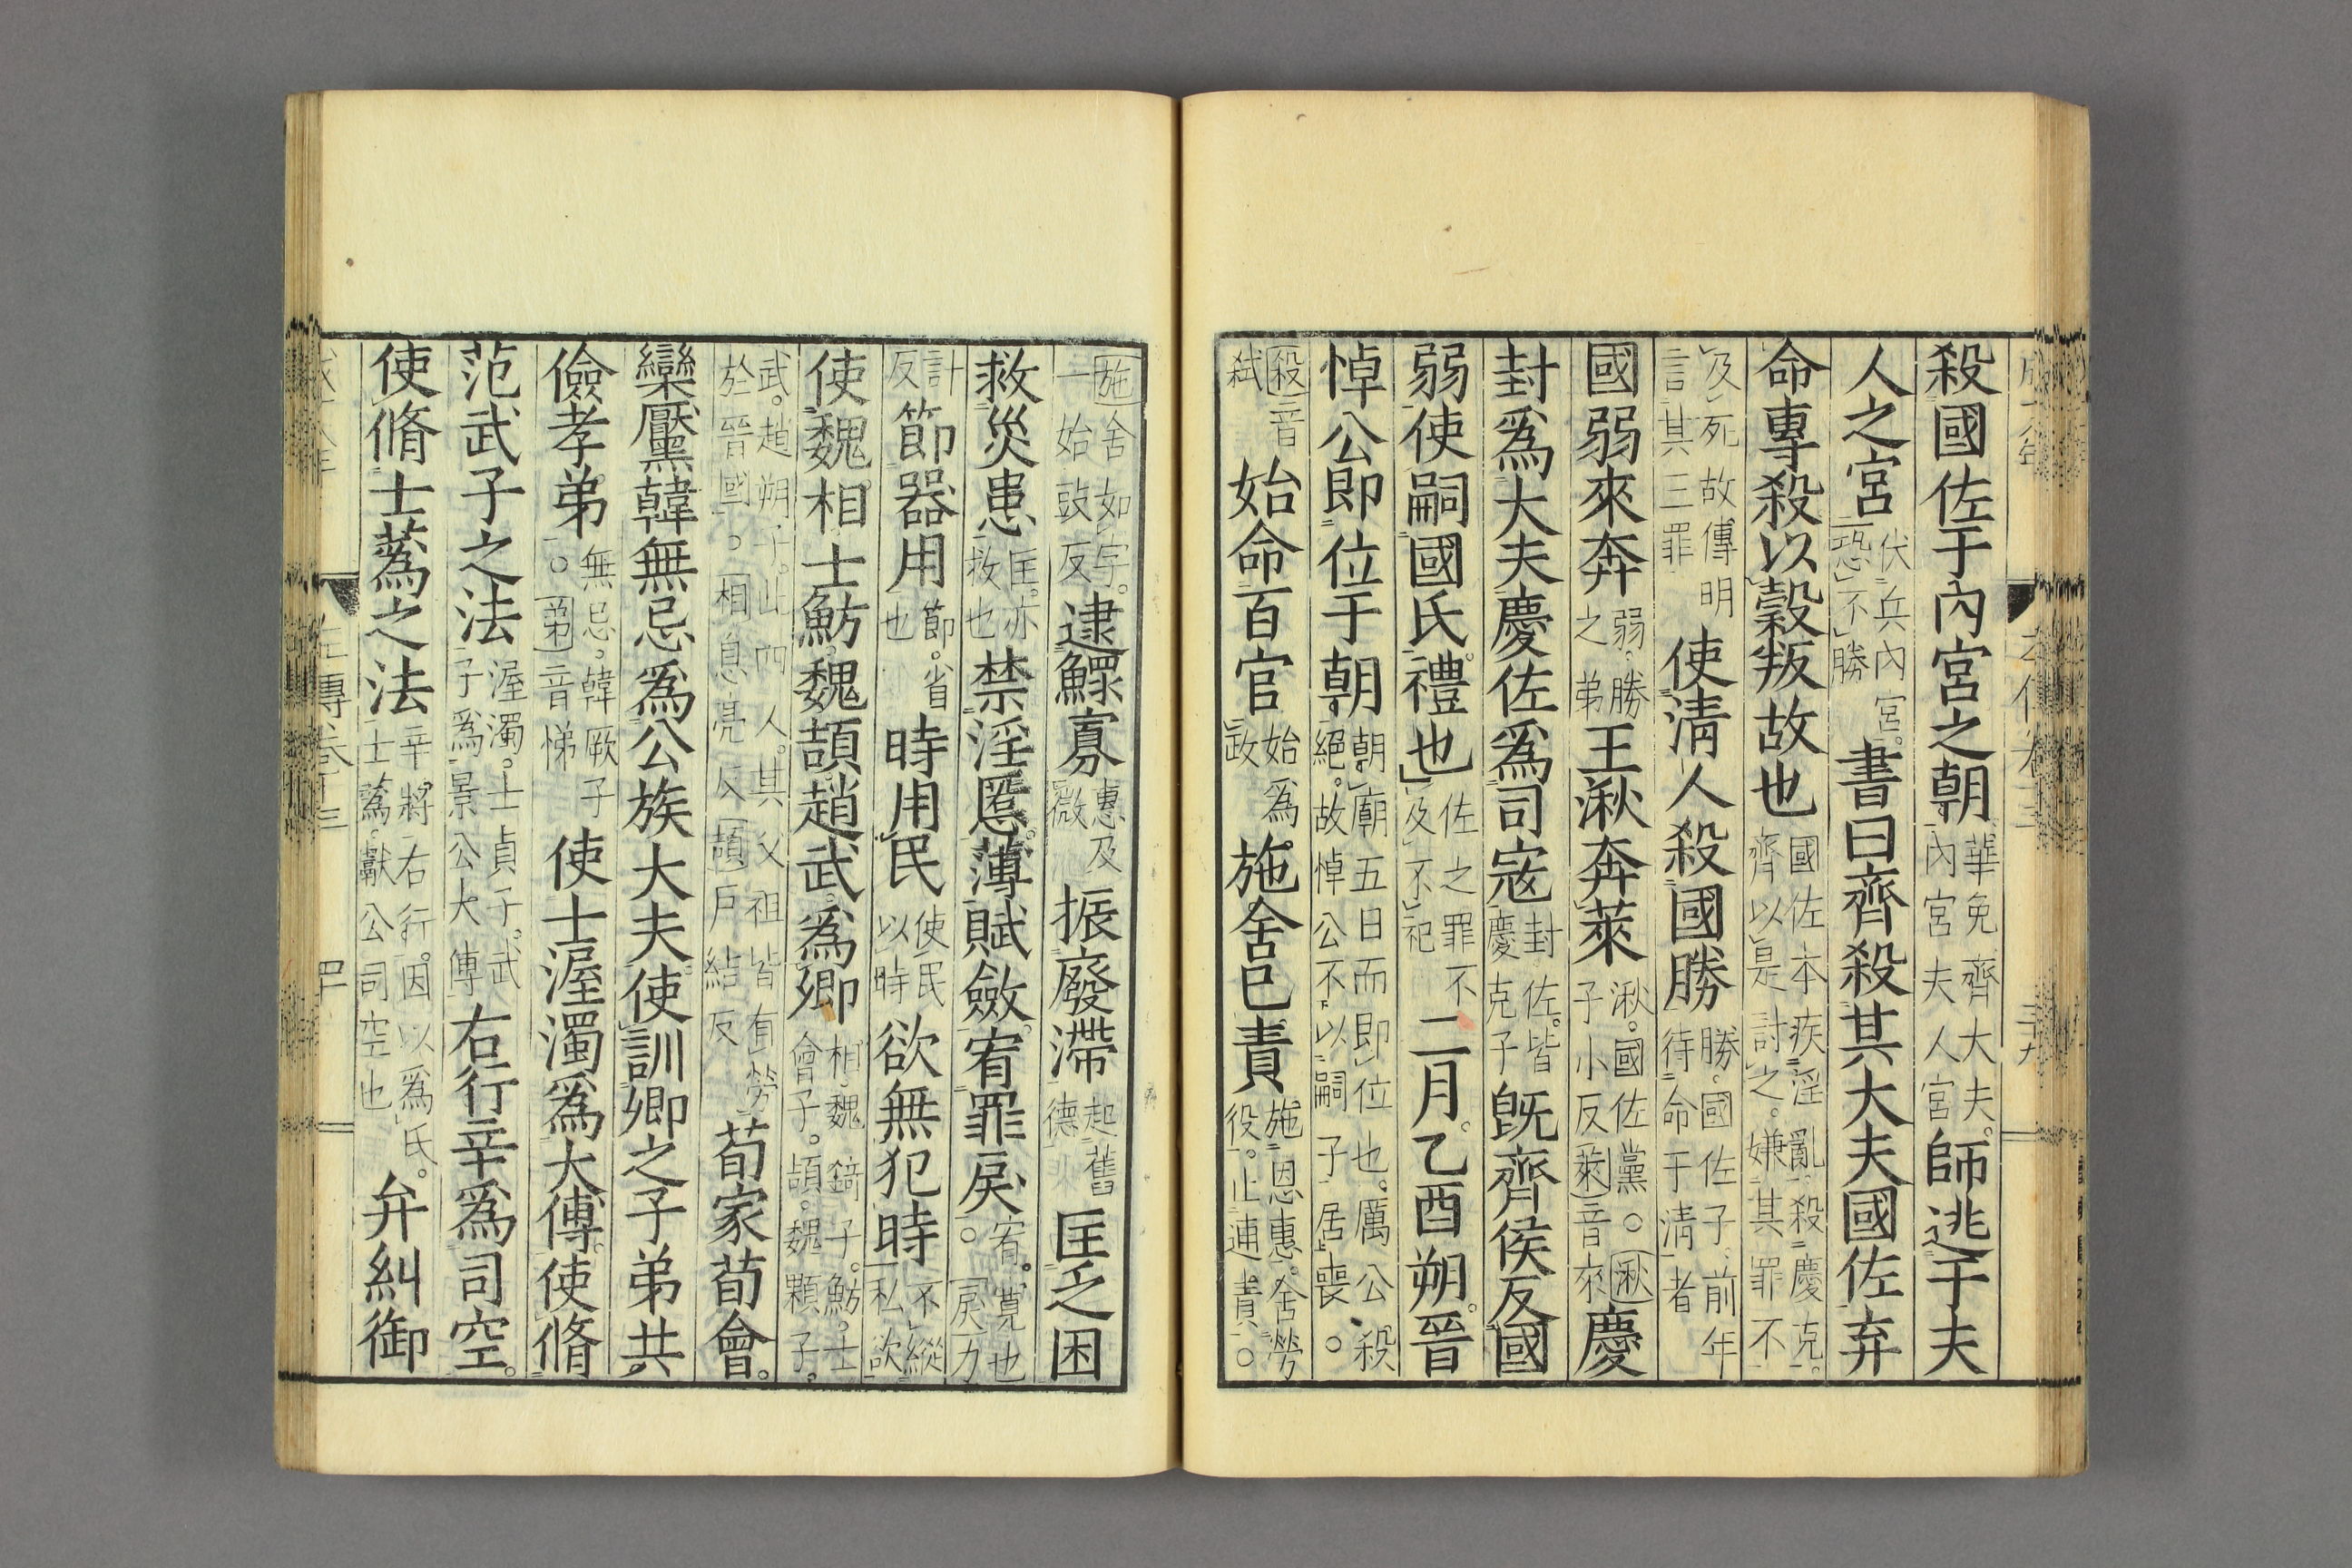 殺國佐于內宮之朝華免齊大夫內宮夫人宮師逃于夫
人之宮伏兵內宮恐不勝書曰齊殺其大夫國佐弃
命專殺以穀叛故也國佐本疾淫亂殺慶克齊以是討之嫌其罪不
及死故傳明言其三罪使清人殺國勝勝國佐子前年待命于清者
國弱來奔弱勝之弟王湫奔萊湫國佐黨○湫子小反萊音來慶
封爲大夫慶佐爲司寇封佐皆慶克子旣齊侯反國
弱使嗣國氏禮也佐之罪不及不祀二月乙酉朔晉
悼公即位于朝朝廟五日而即位也厲公殺絕故悼公不以嗣子居喪○
殺音弒始命百官始爲政施舍已責施恩惠舍勞役止逋責○
施舍如字一始豉反逮鰥寡惠及微振廢滯起舊德匡乏困
救災患匡亦救也禁淫慝薄賦斂宥罪戾宥寬也○戾力
計反節器用節省也時用民使民以時欲無犯時不縱私欲
使魏相士魴魏頡趙武爲卿相魏錡子魴士會子頡魏顆子
武趙朔子此四人其父祖皆有勞於晉國○相息亮反頡戶結反荀家荀會
欒黶韓無忌爲公族大夫使訓卿之子弟共
儉孝弟無忌韓厥子○弟音悌使士渥濁爲大傅使脩
范武子之法渥濁士貞子武子爲景公大傅右行辛爲司空
使脩士蒍之法辛將右行因以爲氏士蒍獻公司空也弁糾御
左傳卷十三